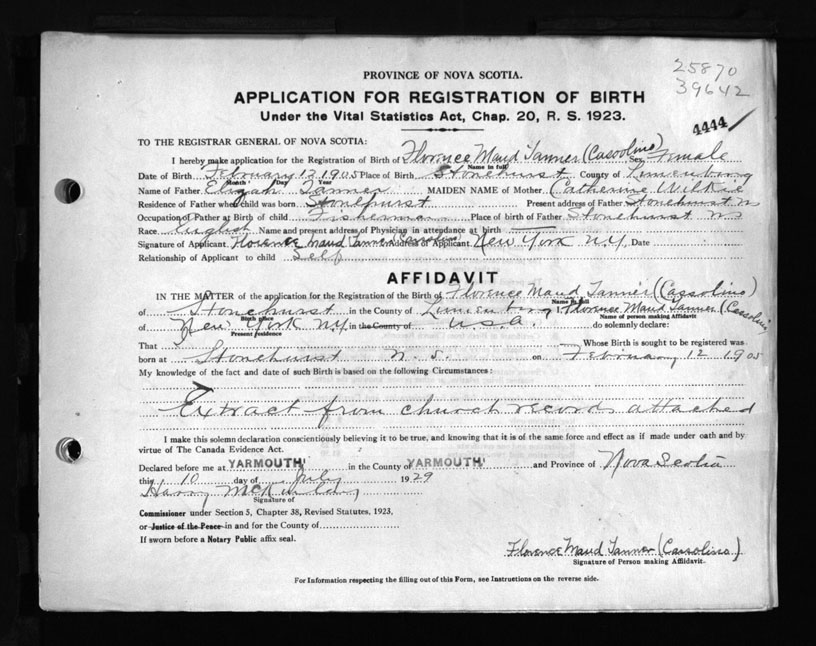 25870
39642
4444
PROVINCE OF NOVA SCOTIA.
APPLICATION FOR REGISTRATION OF BIRTH
Under the Vital Statistics Act, Chap. 20, R. S. 1923.
TO THE REGISTRAR GENERAL OF NOVA SCOTIA:
I hereby make application for the Registration of Birth of Florence Maud Tanner (Cassolino) Sex Female
Name in full
Date of Birth February 12 1905 Place of Birth Stonehurst County of Lunenburg
Month Day Year
Name of Father Elizah Tanner MAIDEN NAME of Mother Catherine Wilkie
Residence of Father when child was born Stonehurst Present address of Father Stonehurst NS
Occupation of Father at Birth of child Fisherman Place of birth of Father Stonehurst NS
Race English Name and present address of Physician in attendance at birth —
Signature of Applicant Florence Maud Tanner (Cassolino) Address of Applicant New York N.Y. Date
Relationship of Applicant to child Self
AFFIDAVIT
IN THE MATTER of the application for the Registration of the Birth of Florence Maud Tanner (Cassolino)
Name in full
of Stonehurst in the County of Lunenburg I, Florence Maud Tanner (Cassolino)
Birth place Name of person making Affidavit
of New York N.Y. in the County of U.S.A. do solemnly declare:
Present residence
That Whose Birth is sought to be registered was
born at Stonehurst N.S. on February 12 1905
My knowledge of the fact and date of such Birth is based on the following Circumstances:
Extract from church records attached
I make this solemn declaration conscientiously believing it to be true, and knowing that it is of the same force and effect as if made under oath and by
virtue of The Canada Evidence Act.
Declared before me at YARMOUTH in the County of YARMOUTH and Province of Nova Scotia
this 10 day of July 1929
Harry
Signature of
Commissioner under Section 5, Chapter 38, Revised Statutes, 1923,
or Justice of the Peace in and for the County of
If sworn before a Notary Public affix seal.
Florence Maud Tanner (Cassolino)
Signature of Person making Affidavit.
For Information respecting the filling out of this Form, see Instructions on the reverse side.